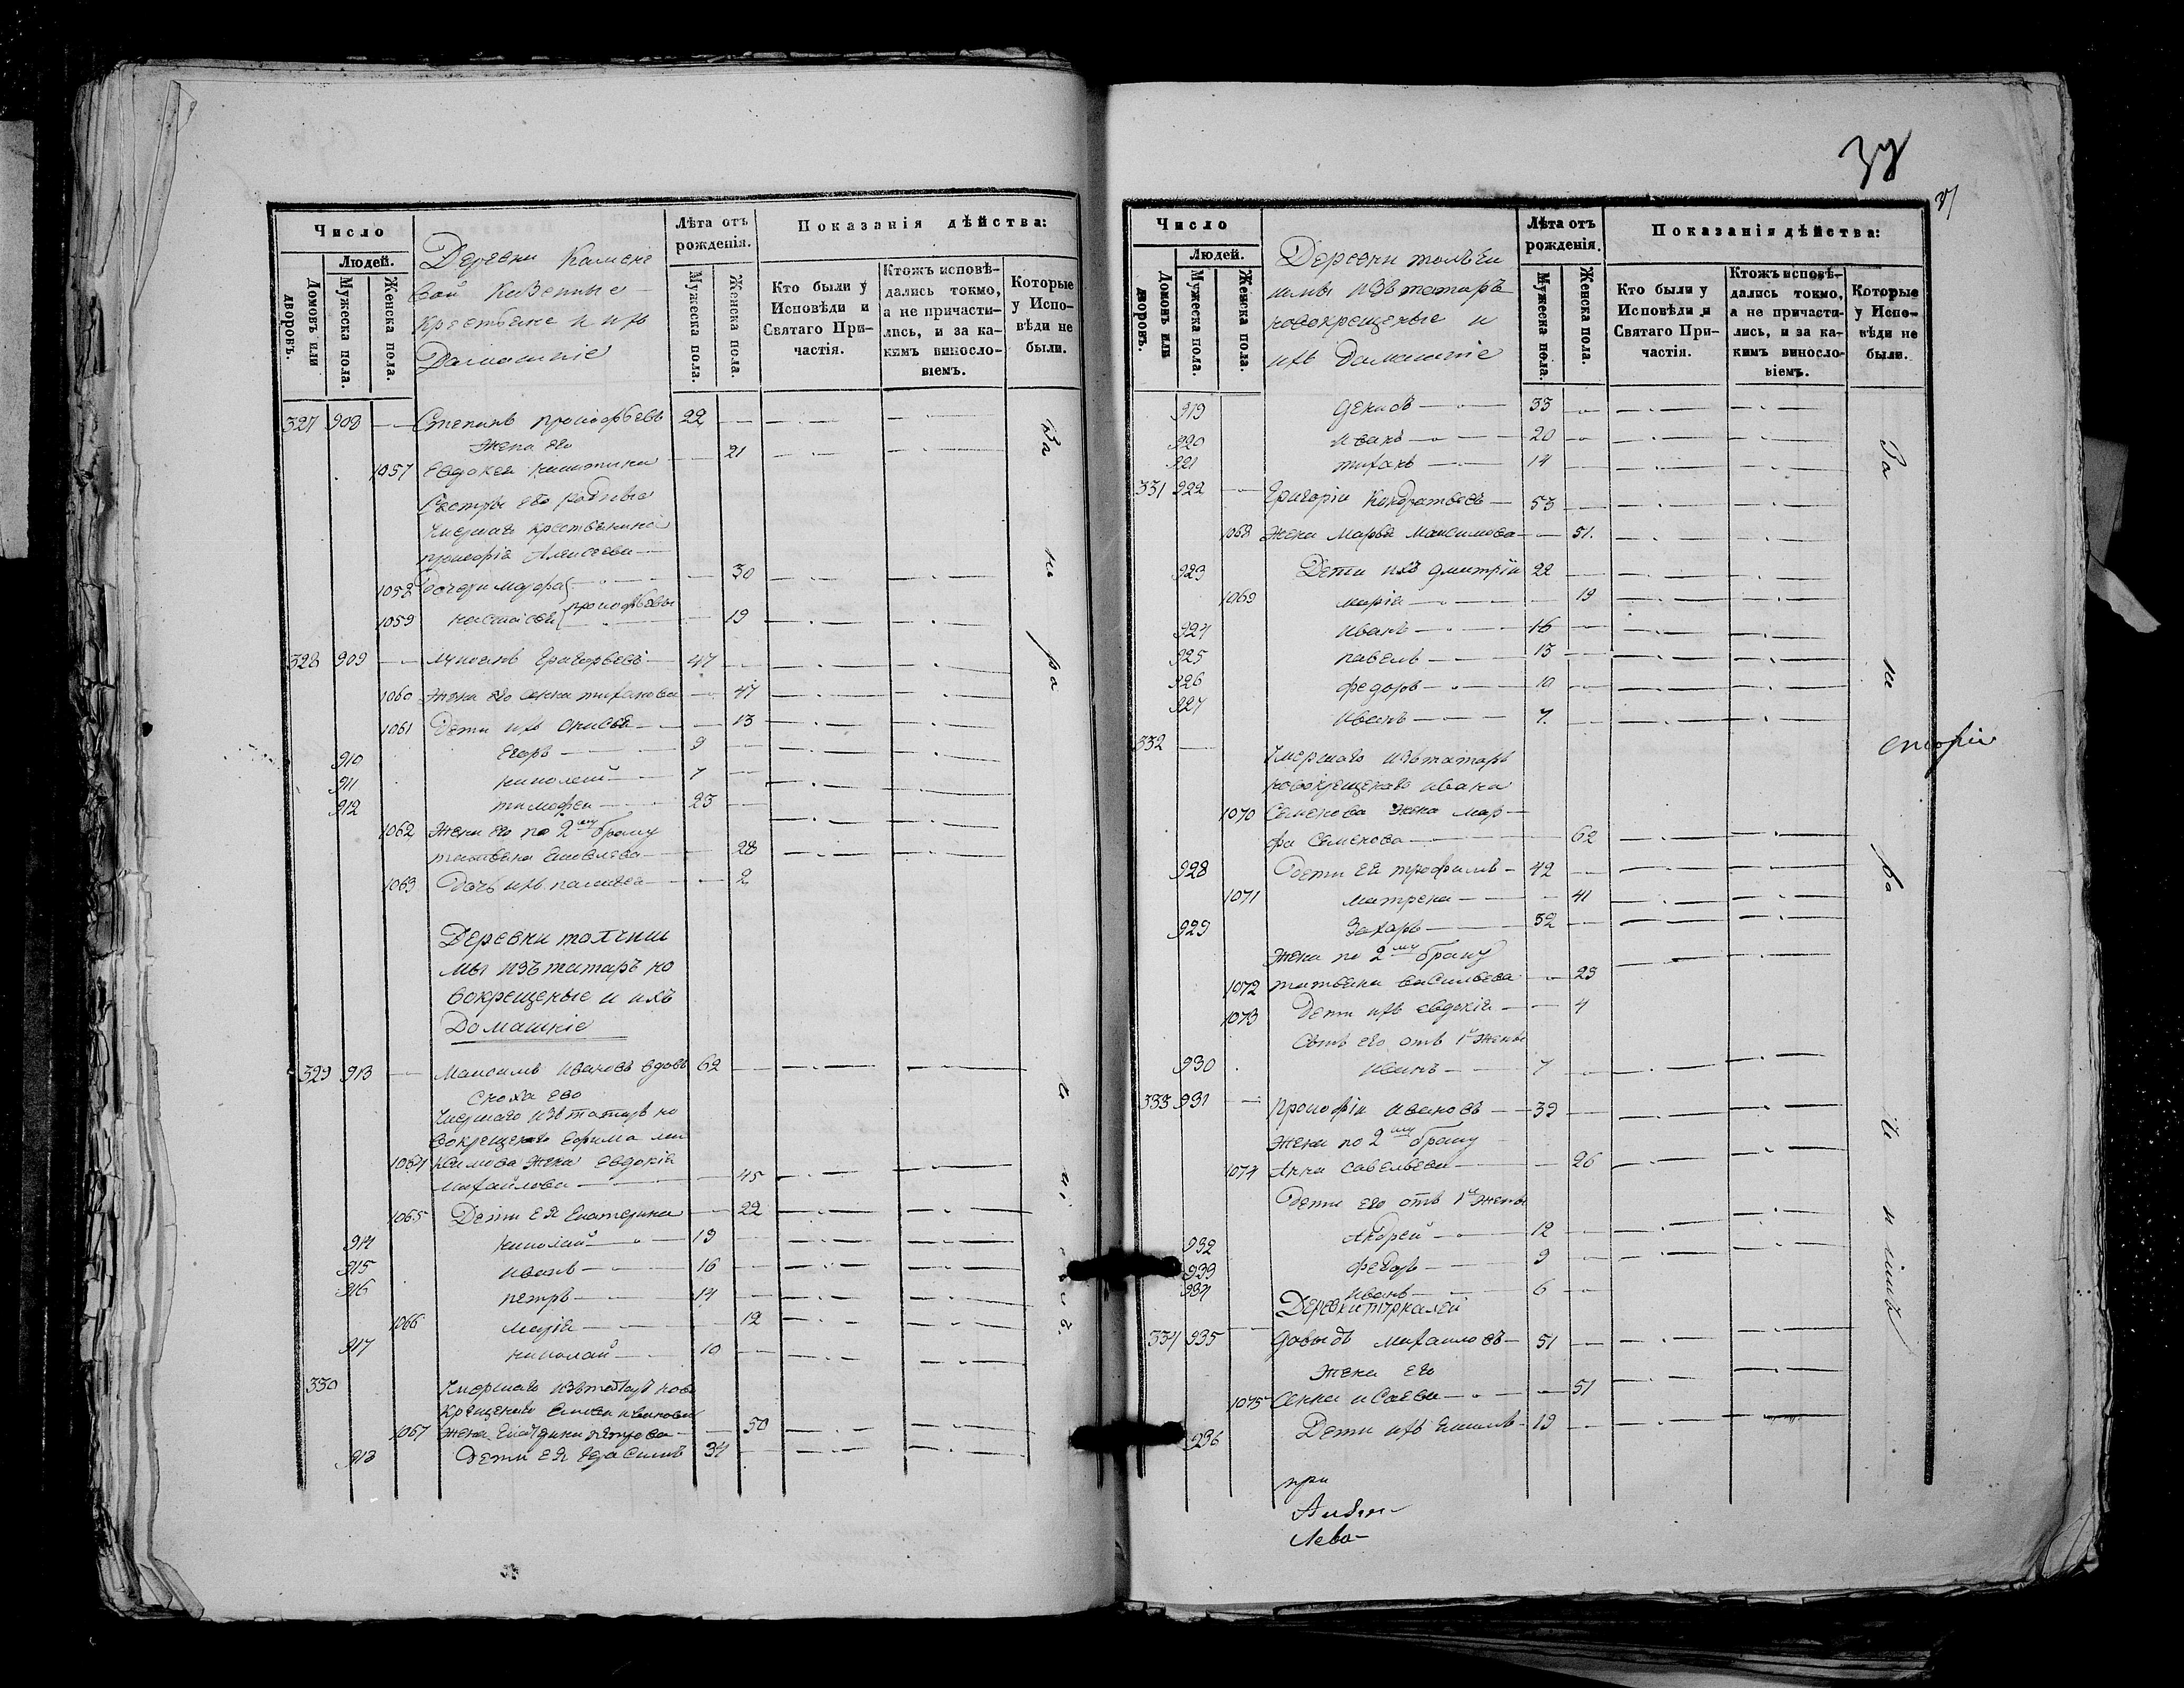 Число
Людей.
Домовъ или дворовъ.
Мужеска пола.
Женска пола.
Деревни Камене
вой Казенные
Крестьяне и ихъ
Домашніе
Лѣта отъ рожденія.
Мужеска пола.
Женска пола.
Показанія дѣйства:
Кто были у Исповѣди и Святаго Причастія.
Ктожъ исповѣдались токмо, а не причастились, и за какимъ винословіемъ.
Которые у Исповѣди не были.
327 908 Степанъ Прокофьевъ 22
Жена его
1057 Евдокея Никитина 21
Сестры его родные
Умершаго крестьянина
Прокофія Алексеева
1058 Дочери Марфа 30
Прокофьевы
1059 Настасья 19
328 909 Лукоянъ Григорьевъ 47
1060 Жена его Анна Тихонова 47
1061 Дети ихъ Анисья 13
910 Егоръ 9
911 Николай 7
912 Тимофеи 23
1062 Жена его по 2му браку
Татьяна Яковлева 28
1063 Дочь ихъ Палагея 2
Деревни Толчиш
мы изъ татаръ но
вокрещеные и ихъ
Домашніе
329 913 Максимъ Ивановъ вдовъ 62
Сноха его
Умершаго изъ татаръ но
вокрещенаго Ефима Ма
1064 ксимова Жена Евдокія
Михайлова 45
1065 Дети ея Екатерина 22
914 Николай 19
915 Иванъ 16
916 Петръ 14
1066 Марія 12
917 Николай 10
330 Умершаго изъ татаръ ново
крещенаго Ивана Иванова
1067 Жена Екатерина Петрова 50
918 Дети ея Герасимъ 34
За не ра
37
Число
Людей.
Домовъ или дворовъ.
Мужеска пола.
Женска пола.
Деревни Толъчи
шмы изъ татаръ
новокрещеные и
ихъ Домашніе
Лѣта отъ рожденія.
Мужеска пола.
Женска пола.
Показанія дѣйства:
Кто были у Исповѣди и Святаго Причастія.
Ктожъ исповѣдались токмо, а не причастились, и за какимъ винословіемъ.
Которые у Исповѣди не были.
919 Денисъ 33
920 Иванъ 20
921 Тихонъ 14
331 922 Григоріи Кондратьевъ 53
1068 Жена Марья Максимова 51.
923 Дети ихъ Дмитріи 22
1069 Марія 19
924 Иванъ 16
925 Павелъ 13
926 Федоръ 10
927 Иванъ 7.
332
Умершаго изъ татаръ
новокрещенаго Ивана
1070 Семенова Жена Мар
фа Семенова 62
928 Дети ея Трофимъ 42
1071 Матрена 41
929 Захаръ 32
Жена по 2му браку
1072 Татьяна Васильева 23
1073 Дети ихъ Евдокія 4
Сынъ его отъ 1й Жены
930 Иванъ 7
333 931 Прокофіи Ивановъ 39
Жена по 2му браку
1074 Анна Савельева 26
Дети его отъ 1й Жены
932 Андрей 12
933 Федоръ 9
934 Иванъ 6
Деревни Туркалей
334 935 Давыдъ Михаиловъ 51
Жена его
1075 Анна Исаева 51
936 Дети ихъ Екимъ 19
За не ра
при
Лево